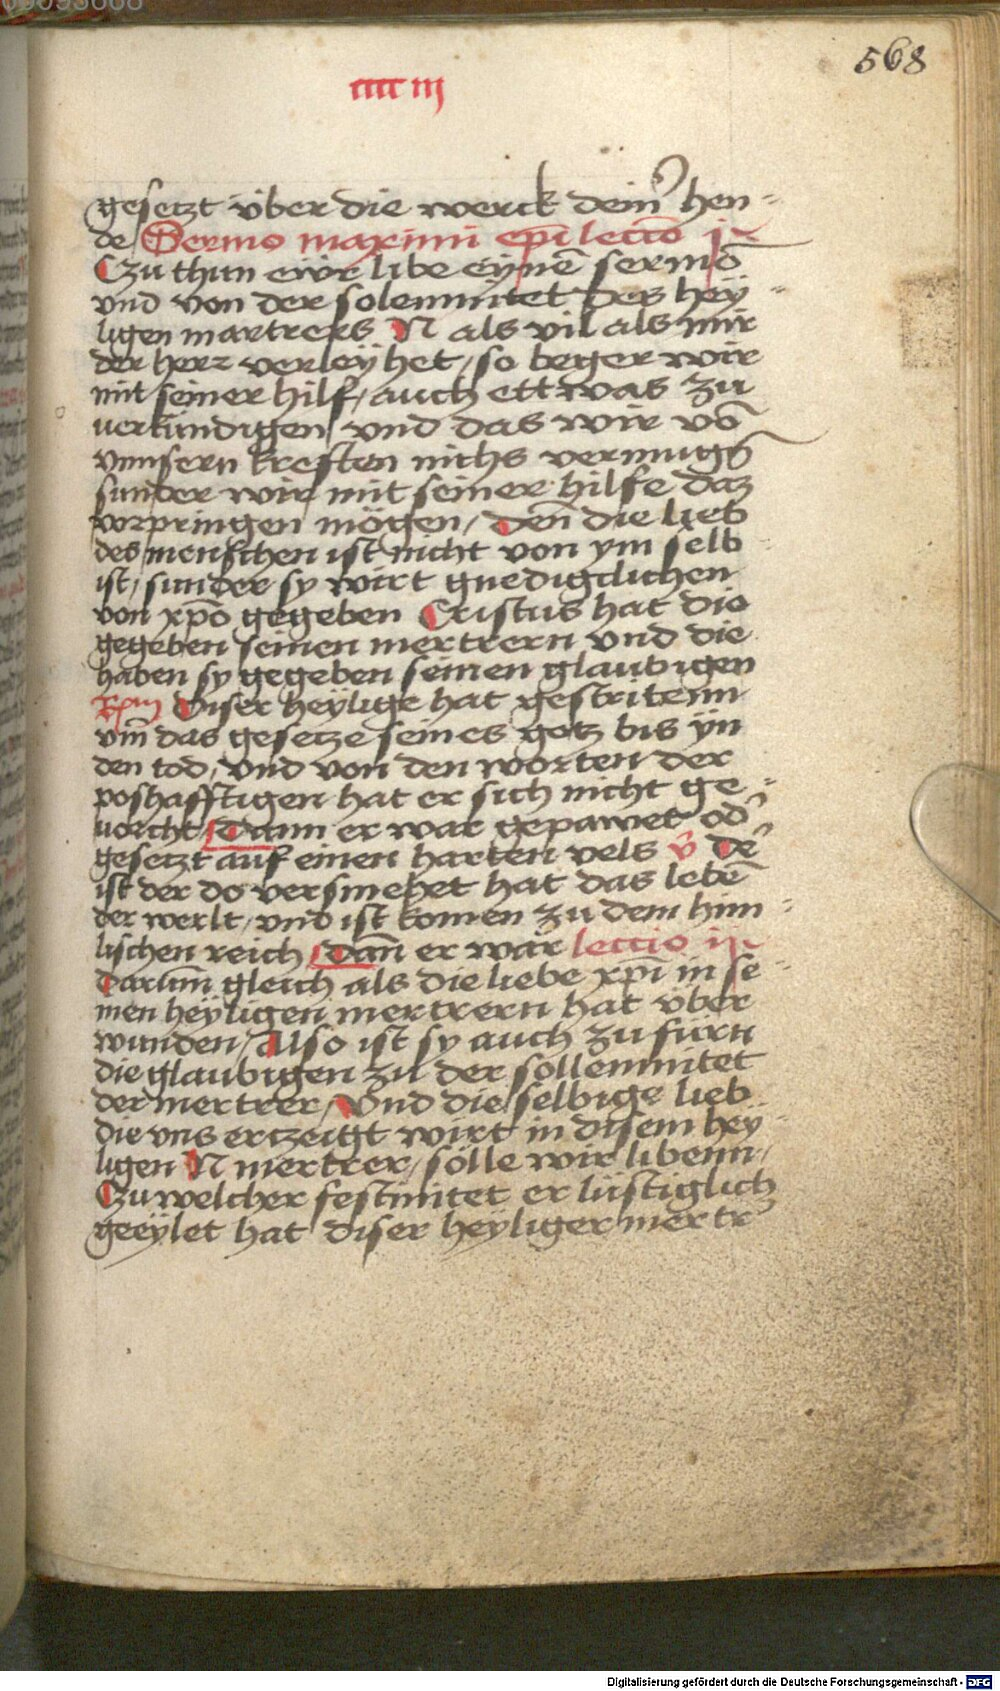 568
cccc iij
gesetzt über die werck dein̄ hen-
de Sermo maximi ep̄i lecc̄o j
Czu thun eẅr libe eynē sermō
vnd von der solemnitet des hey-
ligen martrers N als vil als mir
der herr verleÿhet, so beger wir
mit seiner hilf, auch ettwas zu
uerkündigen vnd das wir vō
vnnsern kreften nichs vermugē
sunder wir mit seiner hilfe daz
vorpringen mögen, den̄ die lieb
des menschen ist nicht von ym selb
ist, sunder sy wirt gnedigclichen
von xp̄o gegeben Cristus hat die
gegeben seinen mertrern vnd die
haben sy gegeben seinen glaubigen
Diser heÿlige hat gestritenn
vm̄ das gesetze seines gotz bis ÿn
den tod, vnd von den worten der
poshafftigen hat er sich nicht ge-
uorcht Dann er war gepawet od̄
gesetzt auf einen harten vels v̄ De᷑
ist der do versmehet hat das lebē
der werlt, vnd ist komen zu dem him-
lischen reich Dan̄ er war leccio ij
Darum̄ gleich als die liebe xp̄i in se-
inen heÿligen mertrern hat über
wunden, Also ist sy auch zu fürn
die glaubigen zu der sollemnitet
der mertrer, Vnd die selbige lieb
die vns erczeigt wirt in disem hey-
ligen N mertrer, sölle wir libenn,
Czu welcher festiuitet er lüstiglich
geeÿlet hat diser heÿliger mertr᷑
Digitalisierung gefördert durch die Deutsche Forschungsgemeinschaft - DFG